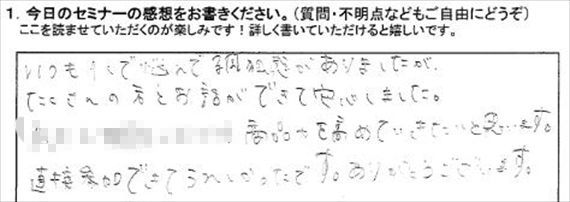 1. 今日のセミナーの感想をお書きください。(質問・不明点などもご自由にどうぞ)
ここを読ませていただくのが楽しみです!詳しく書いていただけると嬉しいです。
いつも1人で悩んで孤独感がありましたが、
たくさんの方とお話ができて安心しました。
商品力を高めていきたいと思います。
直接参加できてうれしかったです。ありがとうございます。